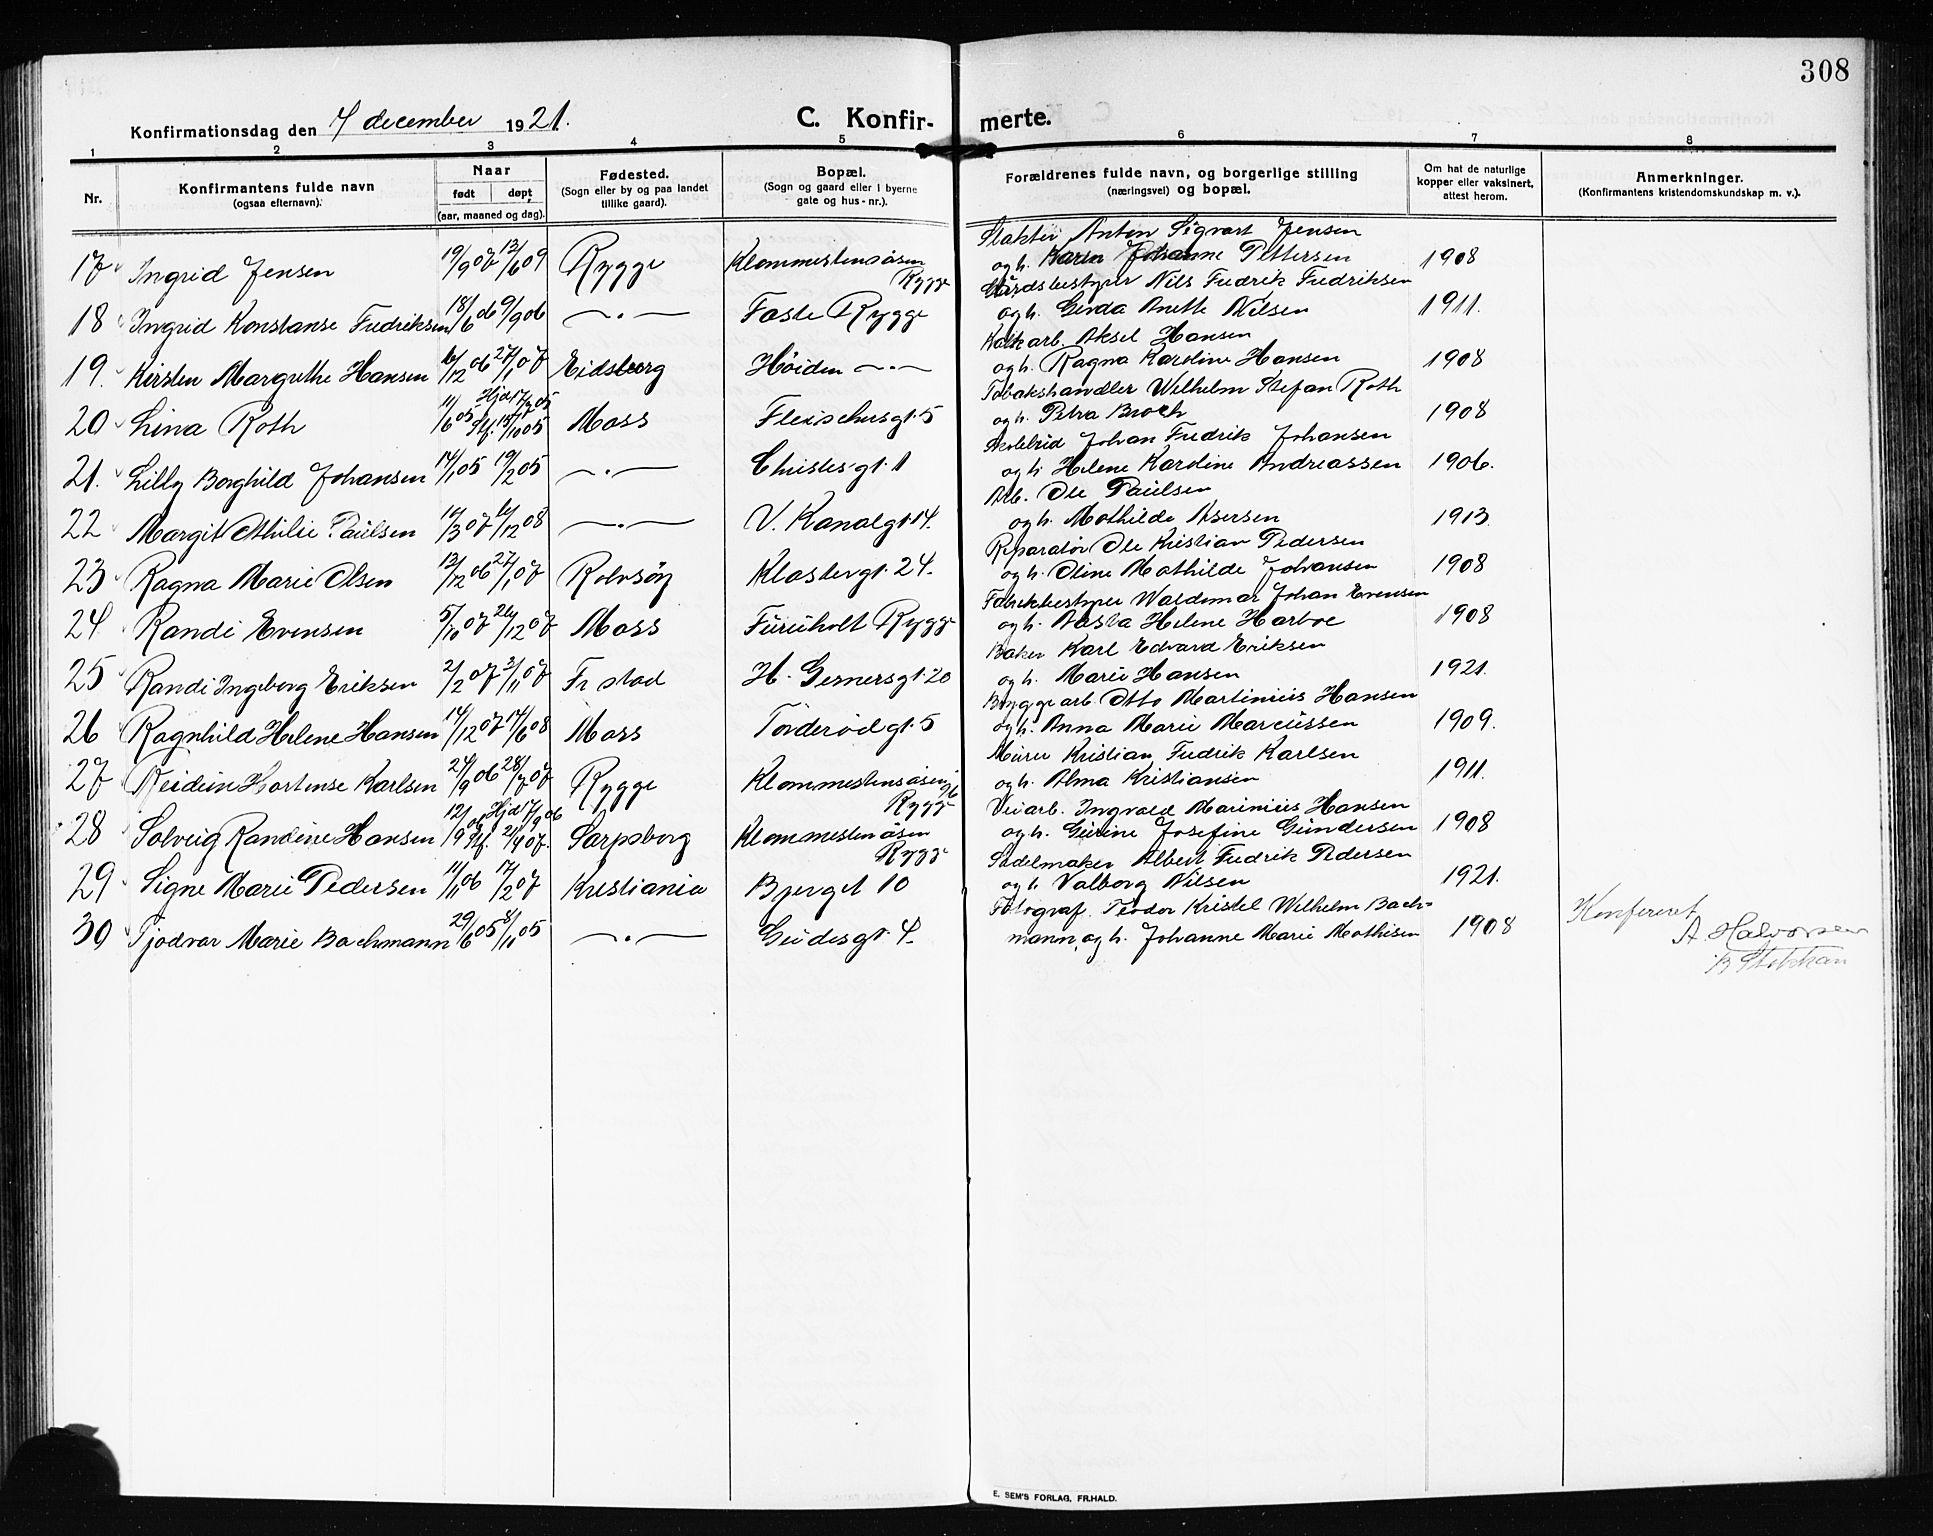 308
Konfirmationsdag den 4 december 1921.
C. Konfir- merte.
1 2 3 4 5 6 7 8
Nr.
Konfirmantens fulde navn
(ogsaa efternavn).
Naar
født døpt
(aar, maaned og dag).
Fødested.
(Sogn eller by og paa landet
tillike gaard).
Bopæl.
(Sogn og gaard eller i byerne
gate og hus-nr.).
Forældrenes fulde navn, og borgerlige stilling
(næringsvei) og bopæl.
Om hat de naturlige
kopper eller vaksinert,
attest herom.
Anmerkninger.
(Konfirmantens kristendomskundskap m. v.).
Slakter Anton Sigvart Jensen
17 Ingrid Jensen 19/9 07 13/6 09 Rygge Klommestensåsen Rygge og h. Karen Johanne Pettersen 1908
Gårdsbestyrer Nils Fredrik Fredriksen
18 Ingrid Konstanse Fredriksen 18/6 06 9/9 06 —·— Foste Rygge og h. Gerda Anette Nilsen 1911.
arb. Aksel Hansen
19. Kirsten Margrethe Hansen 6/12 06 27/1 07 Eidsberg Höiden —·— og h. Ragna Karoline Hansen 1908
Tobakshandler Wilhelm Stefan Roth
20 Lina Roth 11/6 05 Hjd 17/7 05 Stf. 15/10 05 Moss Fleischersgt. 5 og h. Petra Broch 1908
Johan Fredrik Johansen
21. Lilly Borghild Johansen 14/1 05 19/2 05 —·— Christesgt. 1 og h. Helene Karoline Andreassen 1906.
Arb. Ole Paulsen
22 Margit Othilie Paulsen 10/3 07 6/12 08 —·— V. Kanalgt. 14. og h. Mathilde Asersen 1913.
Reparatör Ole Kristian Pedersen
23 Ragna Marie Olsen 13/12 06 27/1 07 Rolvsöy Klostergt. 24. og h. Oline Mathilde Johansen 1908
Fabrikbestyrer Waldemar Johan Evensen
24. Randi Evensen 5/10 07 26/12 07 Moss Furuholt Rygge og h. Aasta Helene Harboe 1908
Baker Karl Edvard Eriksen
25 Randi Ingeborg Eriksen 2/2 07 3/11 07 Fr stad H. Gernersgt. 20 og h. Marie Hansen 1921.
Bryggearb. Otto Martinius Hansen
26 Ragnhild Helene Hansen 14/12 07 14/6 08 Moss Tordenrödgt. 5 og h. Anna Marie Marcussen 1909.
Murer Kristian Fredrik Karlsen
27 Reidun Hortense Karlsen 24/9 06 28/7 07 Rygge Klommestensåsen Rygge og h. Alma Kristiansen 1911.
Veiarb. Ingvald Marinius Hansen
28 Solveig Randine Hansen 12/9 06 Hjd 17/9 06 Stf. 21/9 07. Sarpsborg Klommestenåsen Rygge og h. Gurine Josefine Gundersen 1908
Sadelmaker Albert Fredrik Pedersen
29 Signe Marie Pedersen 11/11 06 17/2 07 Kristiania Bjerget 10 og h. Valborg Nilsen 1921.
Fotograf. Teodor Kristel Wilhelm Bach-
30 Tjodvar Marie Bachmann 29/6 05 8/11 05 —·— Gudesgt. 4. mann, og h. Johanne Marie Mathisen 1908
Konfereret
A. Halvorsen
E. SEM'S FORLAG, FR.HALD.